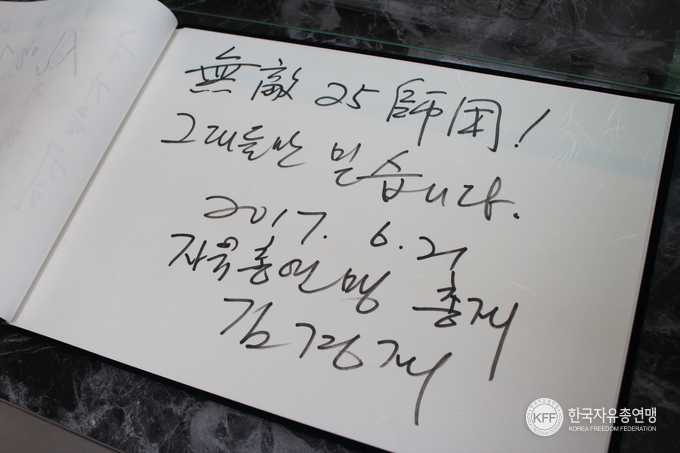 無敵 25 師団!
그대들만 믿습니다.
2017. 6. 21
자유총연맹 총재
김경재
KFF
한국자유총연맹
KOREA FREEDOM FEDERATION